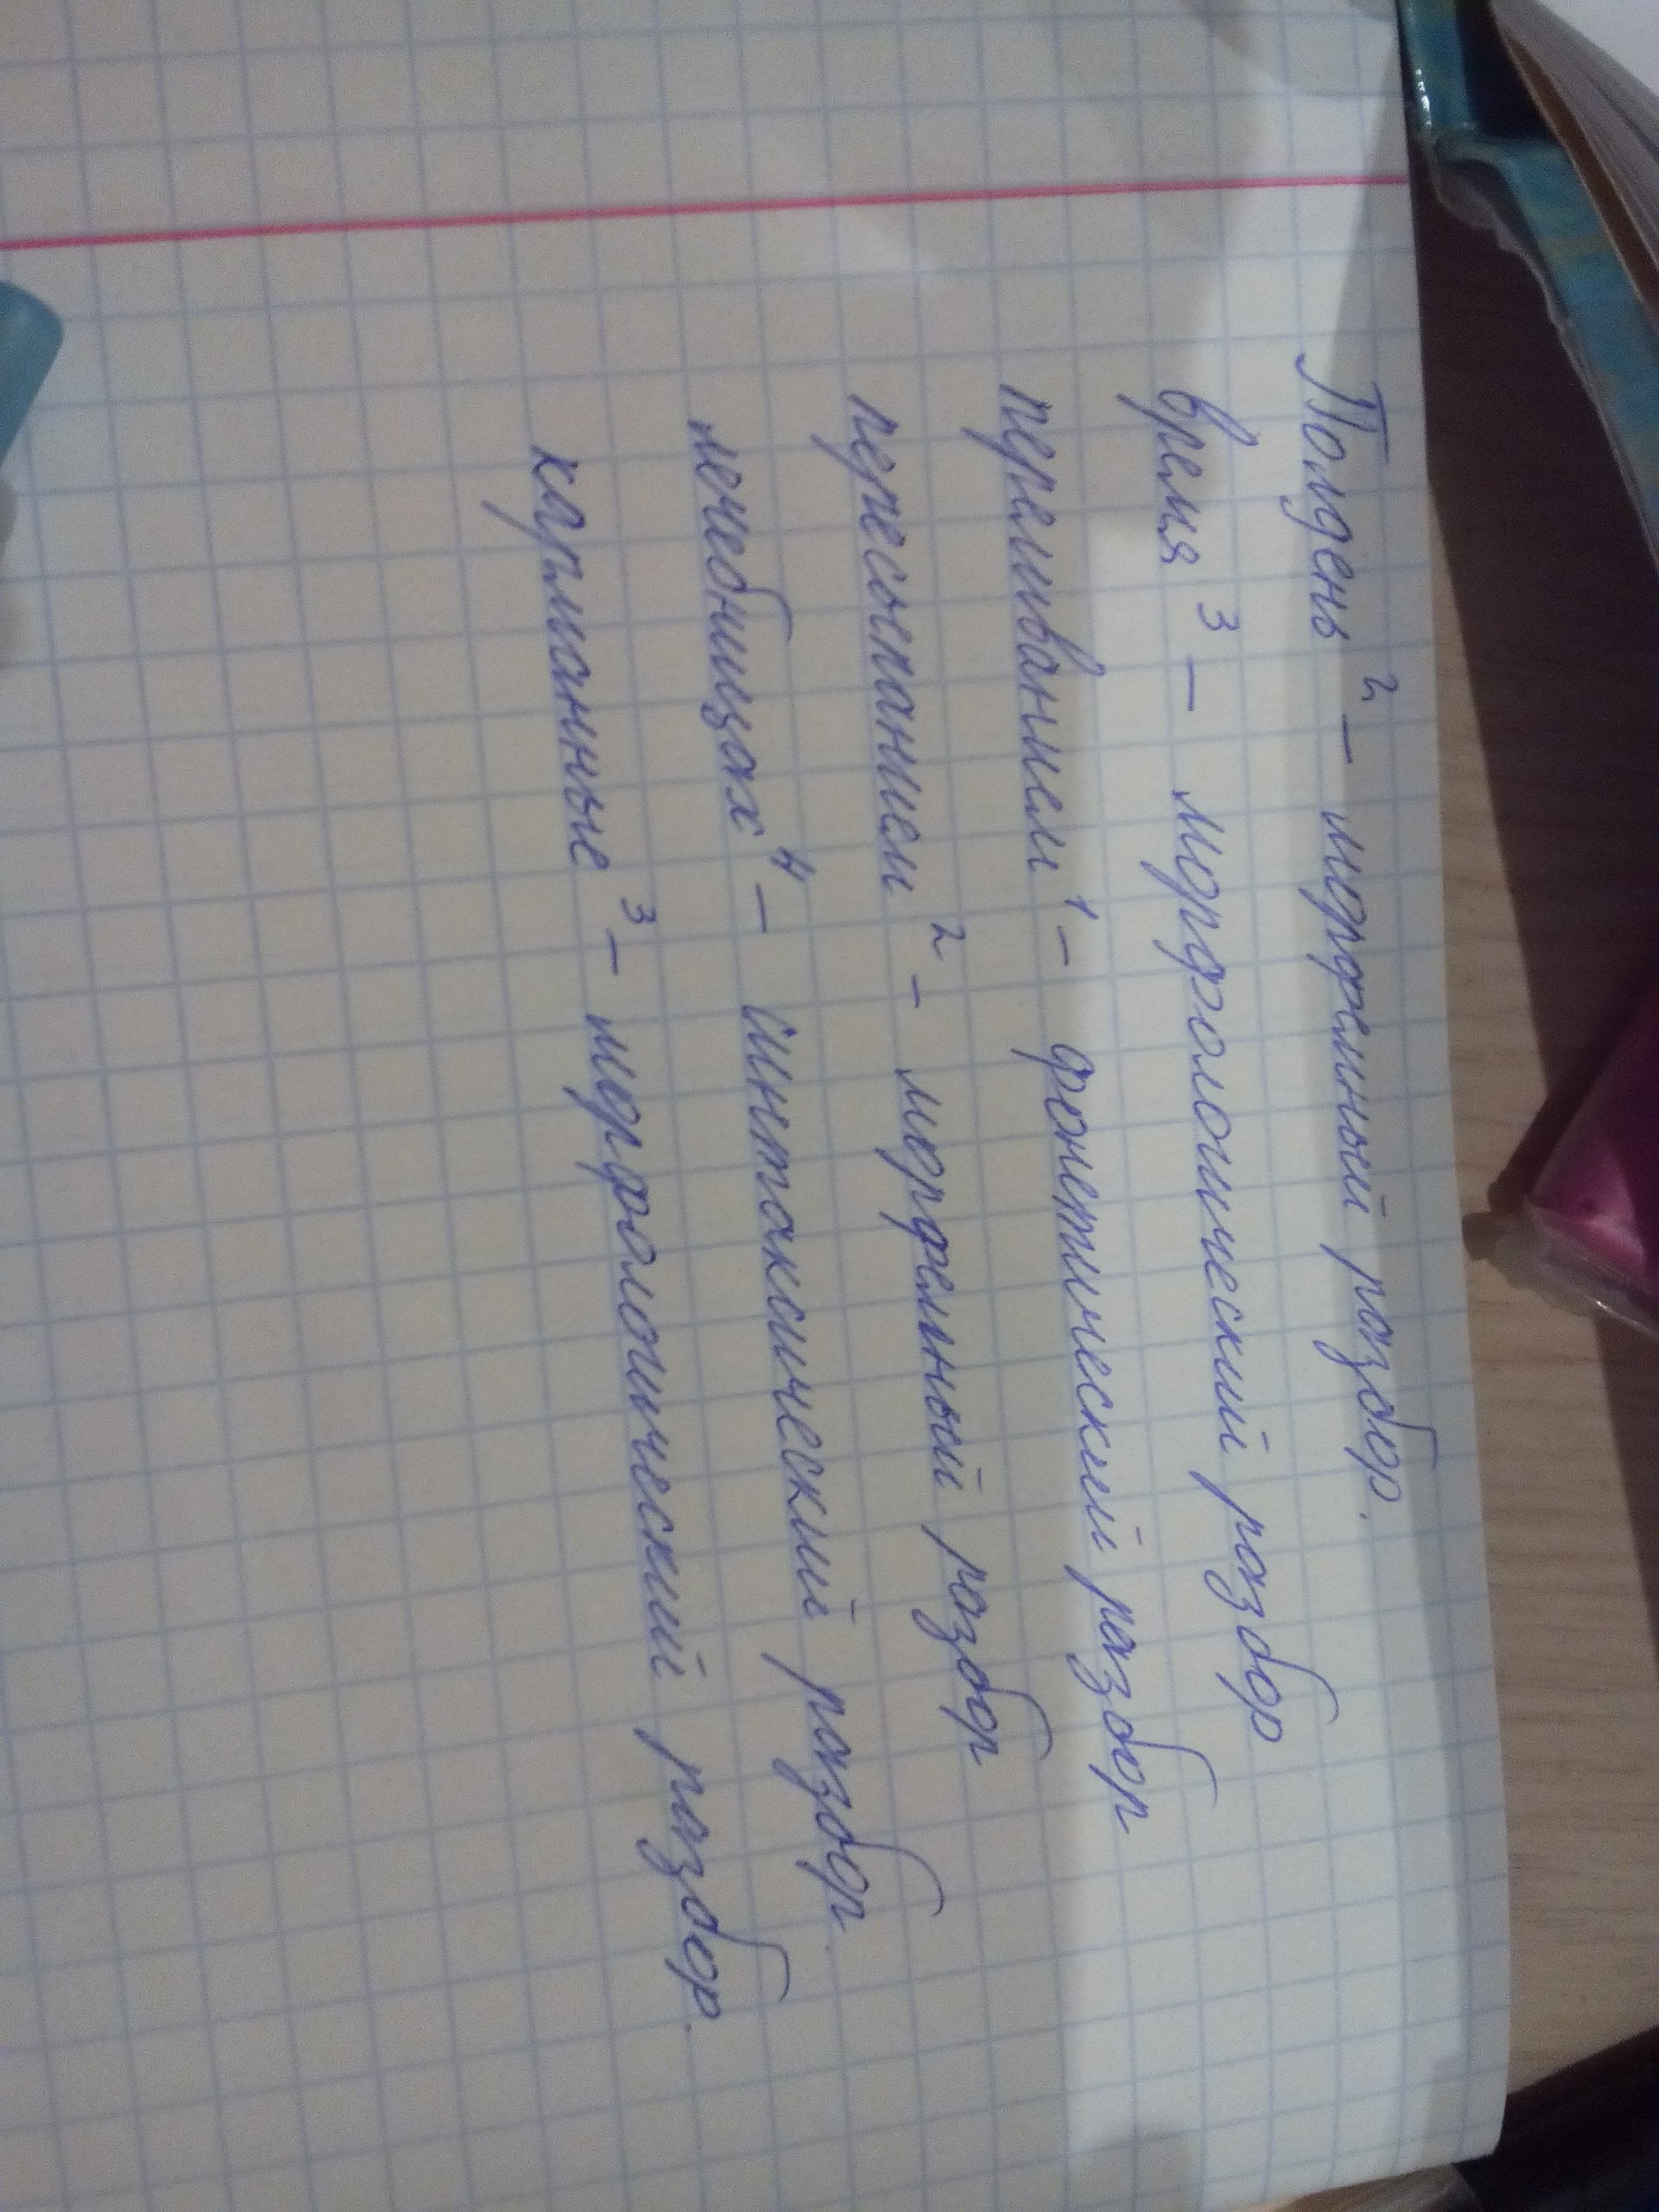 Полдень² – морфемный разбор.
время³ – морфологический разбор
переливанием¹ – фонетический разбор
пересыпанием² – морфемный разбор
лечебницах⁴ – Синтаксический разбор.
карманные³ – морфологический разбор.